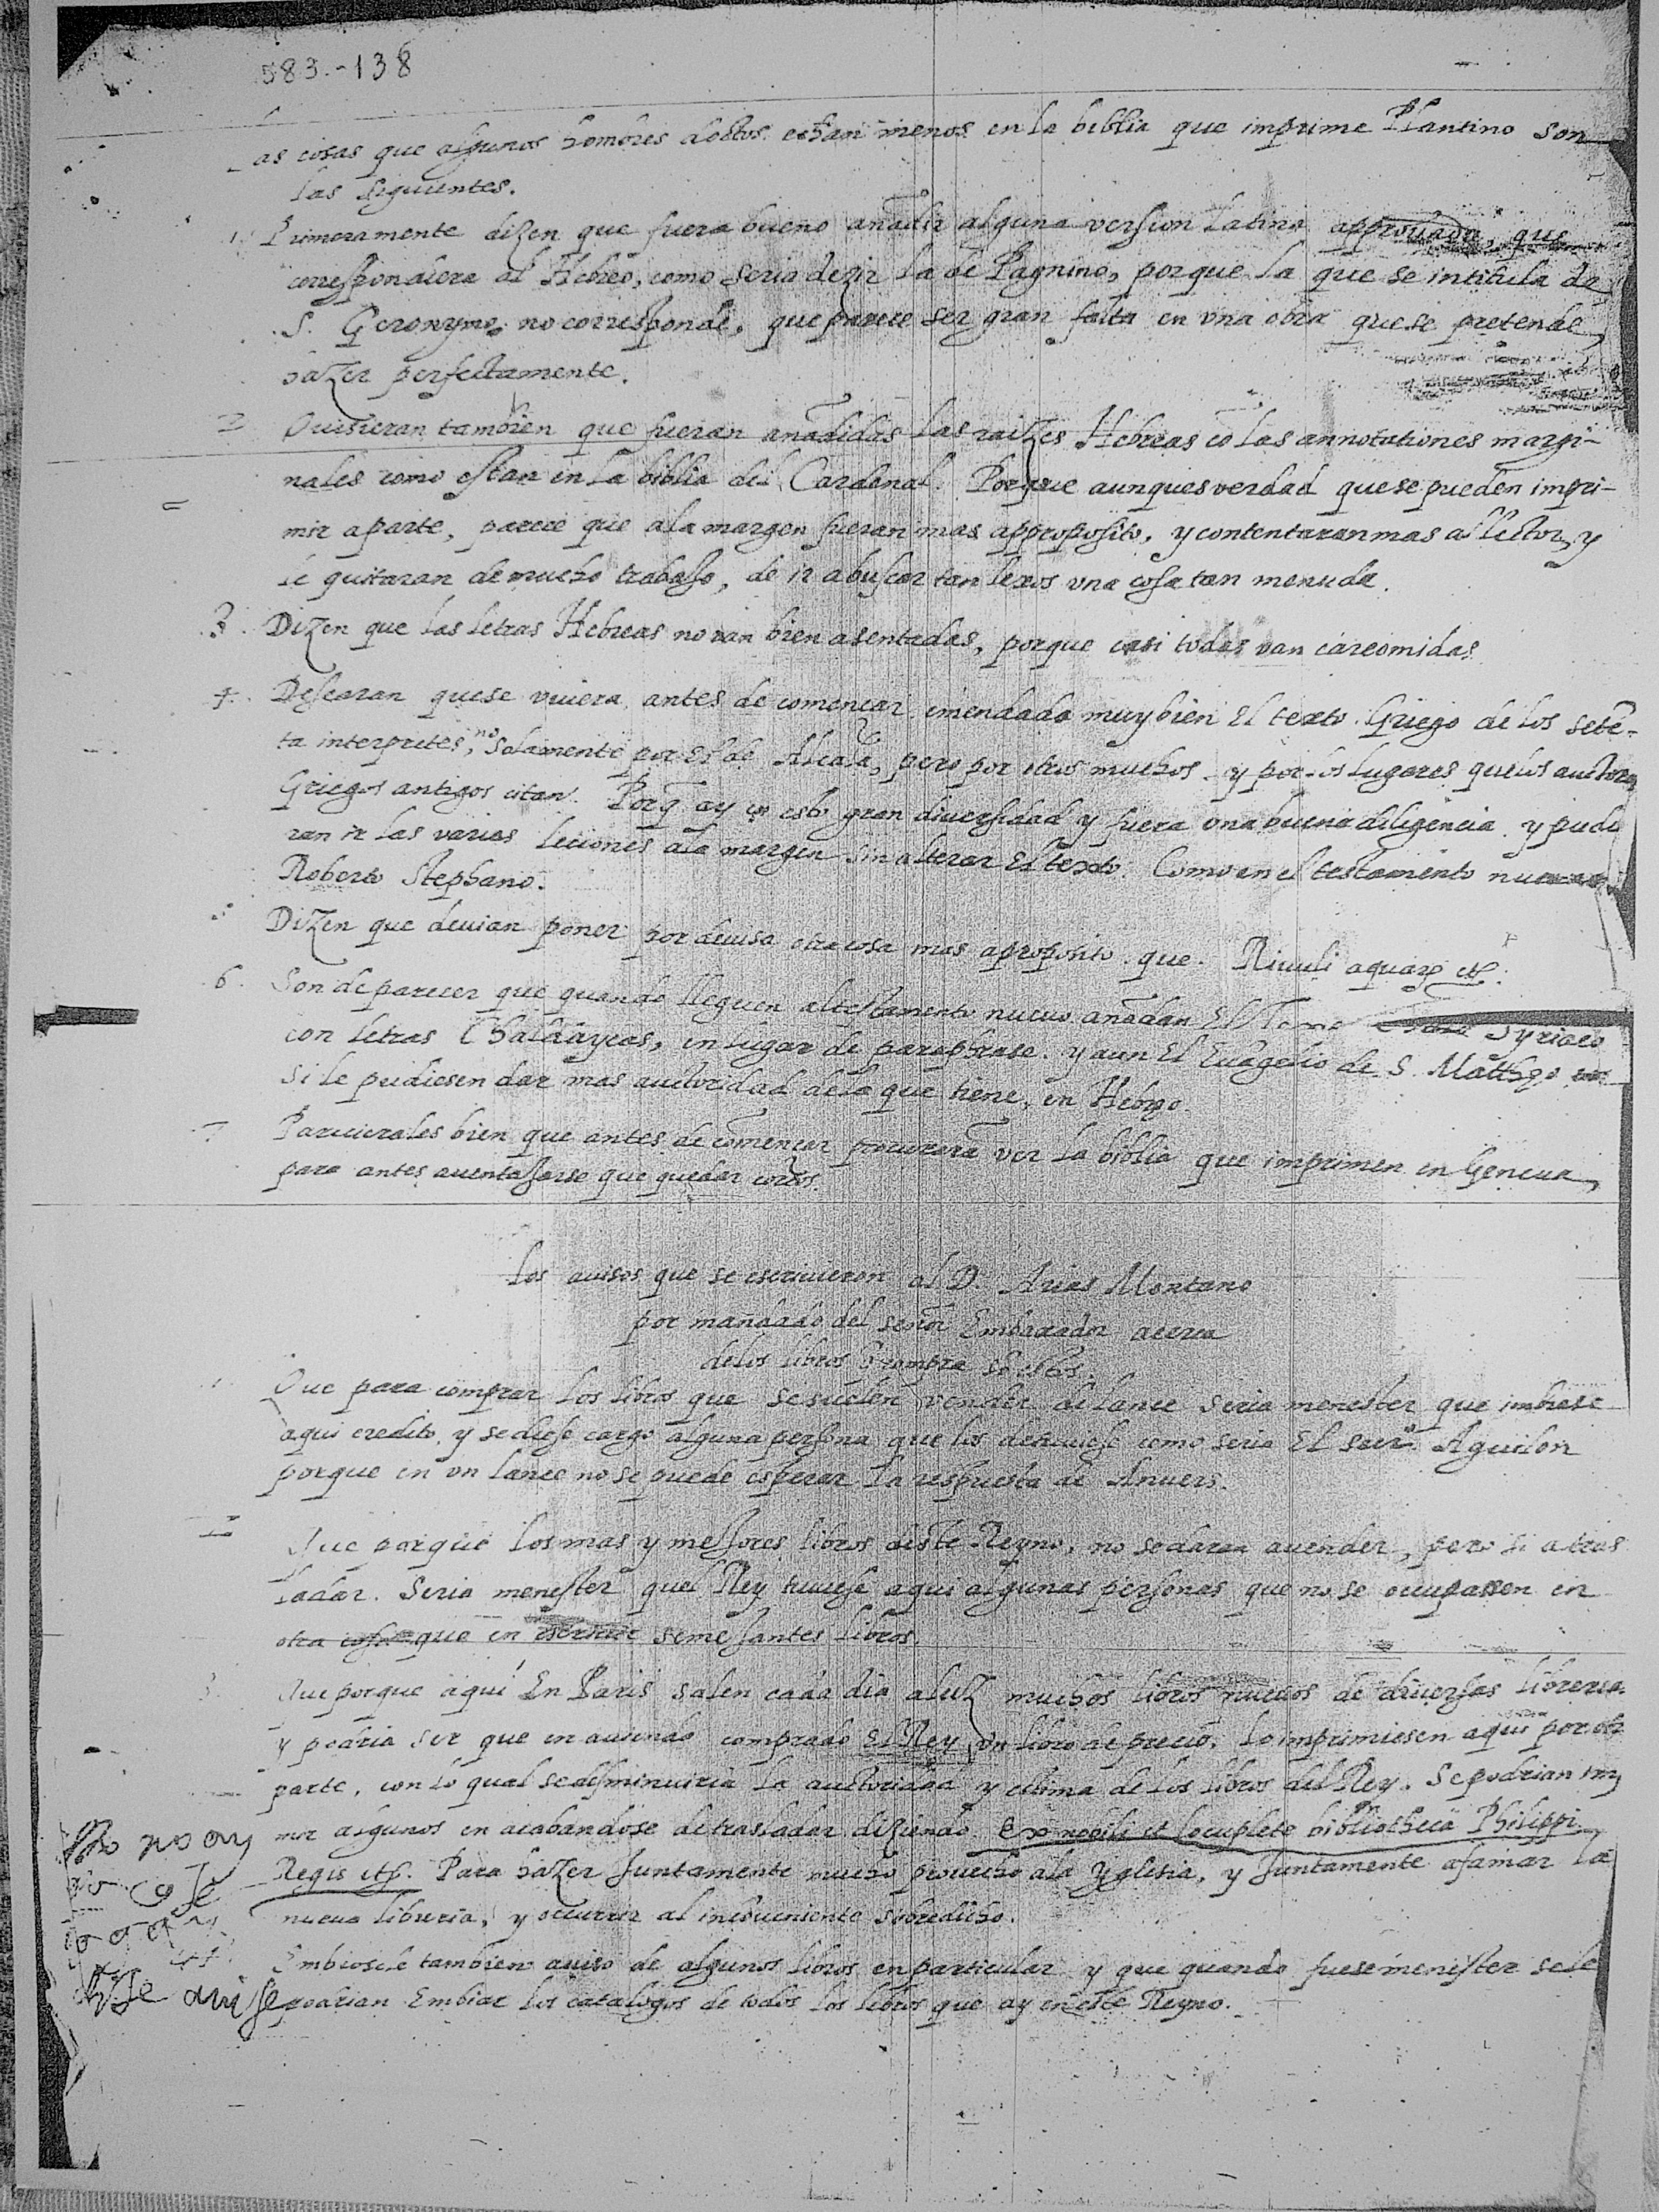 583.-138
Las cosas que algunos hombres doctos echan menos en la biblia que imprime Plantino son
las siguientes.
1. Primeramente dizen que fuera bueno añadir alguna version latina approuada, que
correspondiera al Hebreo, como seria dezir la de Pagnino, porque la que se intitula de
S. Geronymo, no corresponde, que parece ser gran falta en vna obra que se pretende
hazer perfectamente.
2 Quisieran tambien que fueran añadidas las raizes Hebreas cõ las annotationes margi-
nales como estan en la biblia del Cardenal. Porque aunques verdad que se pueden impri-
mir aparte, parece que ala margen fueran mas approposito, y contentaran mas al lector, y
le quitaran de mucho trabajo, de ir a buscar tan lexos vna cosa tan menuda.
3. Dizen que las letras Hebreas no van bien asentadas, porque casi todas van carcomidas
4. Desearan que se vuiera antes de començar emendado muy bien El texto Griego de los setẽ-
ta interpretes, no solamente por El de Alcala, pero por otros muchos y por los lugares que los auctores
Griegos antigos citan. Porq̃ ay en esto gran diuersidad y fuera vna buena diligencia y pudie
ran ir las varias lectiones ala margen sin alterar El texto. Como en el testamento nueuo
Roberto Stephano.
5 Dizen que deuian poner por deuisa otra cosa mas aproposito que Riuuli aquarũ etc.
6. Son de parecer que quando lleguen al testamento nueuo añadan El Syriaco
con letras Chaldaycas, en lugar de paraphrase. y aun El Euãgelio de S. Mattheo
si le pudiesen dar mas auctoridad dela que tiene, en Hebreo.
7 Parecierales bien que antes de començar procurarã ver la biblia que imprimen en Geneua,
para antes auentajarse que quedar cortos.
Los auisos que se escriuieron al D. Arias Montano
por mañdado del señor Embaxador acerca
delos libros q̃ compra so estos.
1. Que para comprar los libros que se suelen vender de lance seria menester que imbiase
aqui credito y se diese cargo alguna persona que los detuuiese como seria El secr.º Aguilon
porque en vn lance no se puede esperar la respuesta de Anuers.
2 Que porque los mas y mejores libros deste Reyno, no se darã a vender, pero si a tras
ladar. Seria menester quel Rey tuuiese aqui algunas personas que no se ocupassen en
otra cosa que en escriuir semejantes libros.
3. Que porque aqui En Paris salen cada dia a luz muchos libros nueuos de diuersas librerias
y podria ser que en auiendo comprado El Rey vn libro de precio, lo imprimiesen aqui por otra
parte, con lo qual se desminuiria la auctoridad y estima de los libros del Rey. Se podrian impri
mir algunos en acabandose de trasladar diziendo Ex nobili et locuplete bibliotheca Philippi
Regis etc. Para hazer juntamente mucho prouecho ala yglesia, y juntamente afamar la
nueua libreria, y occurrir al incõueniente sobredicho.
Embiosele tambien auiso de algunos libros en particular y que quando fuese menester se le
podrian Embiar los catalogos de todos los libros que ay en este Reyno.
no ay